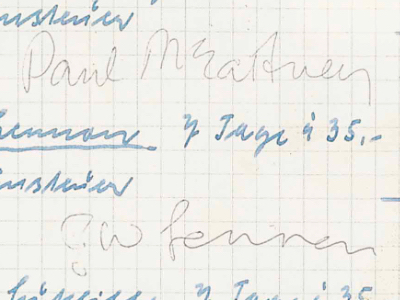 nsteuer
Paul McCartney
Lennon 7 Tage à 35,-
nsteuer
J W Lennon
7 Tage à 35